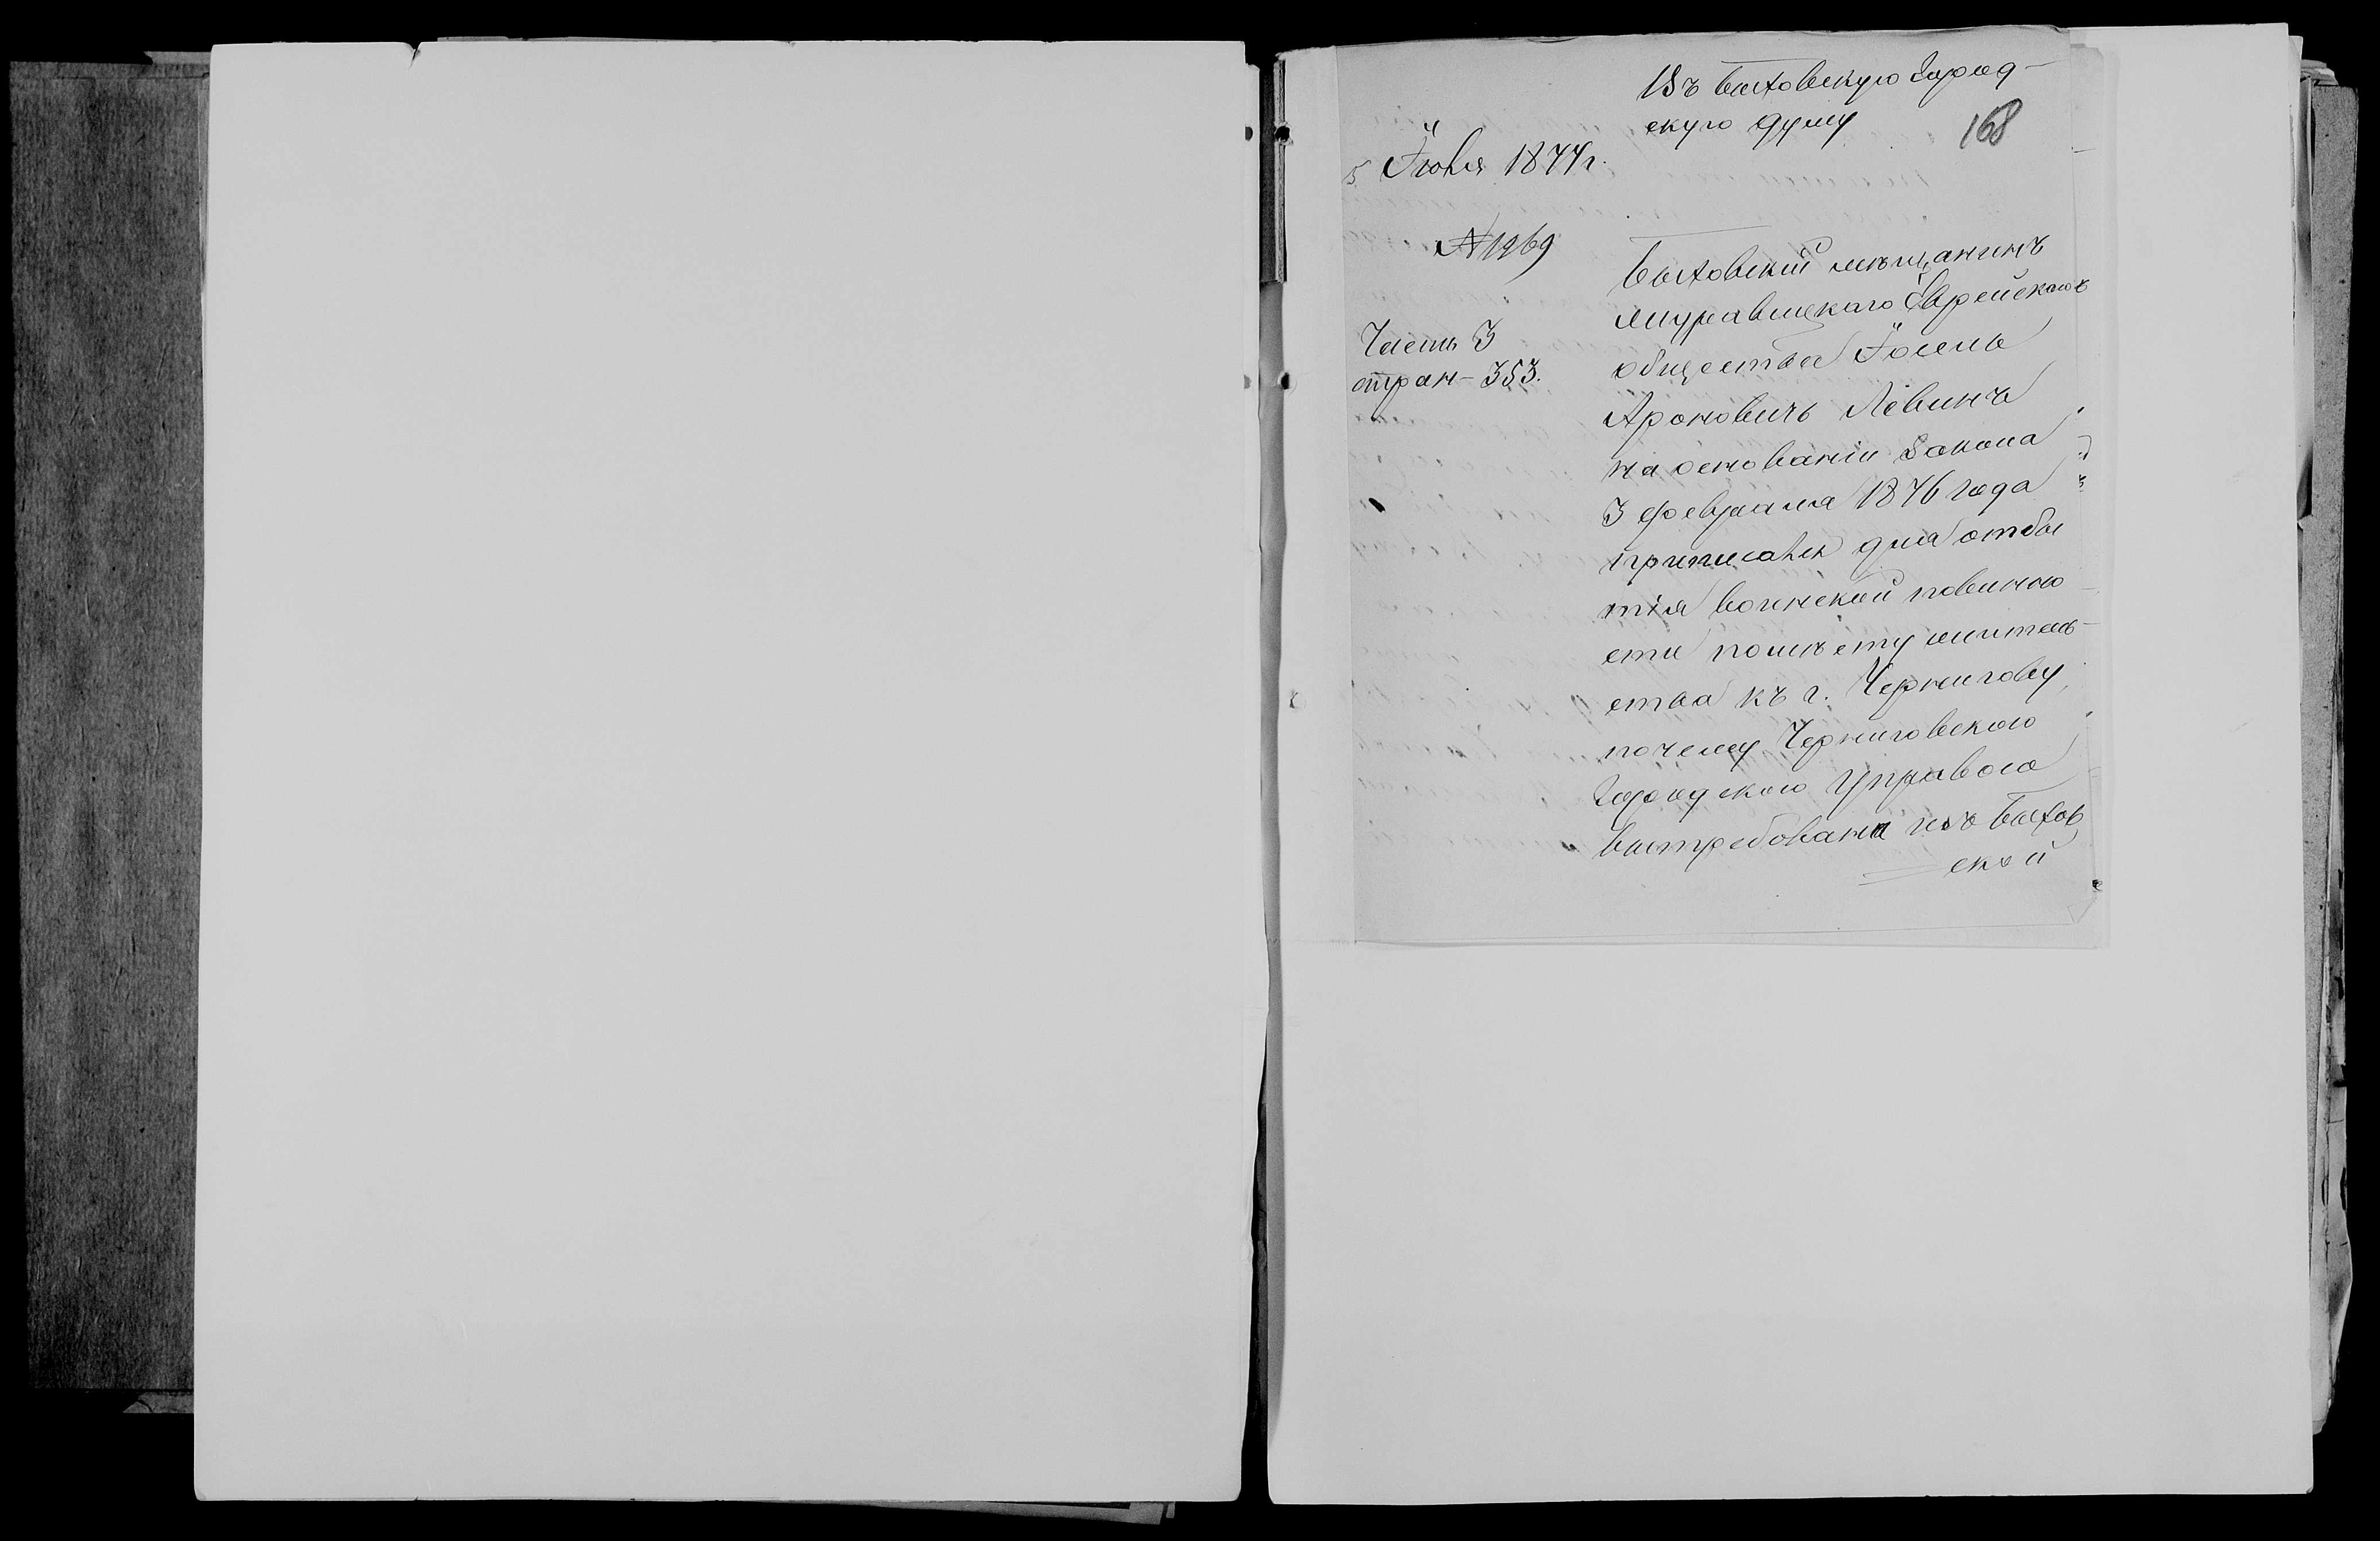 Въ Быховскую Город-
скую Думу
168
5 Іюля 1877 г.
№ 1969
Часть 3
стран - 353.
Быховскій мѣщанинъ
Журавицкаго Еврейскаго
общества Іосель
Ароновичъ Левинъ
на основаніи Закона
3 февраля 1876 года
приписанъ для отбы
тія воинской повинно-
сти по мѣсту житель-
ства къ г. Чернигову,
почему Черниговскою
Городскою Управою
вытребована изъ Быхов
ской